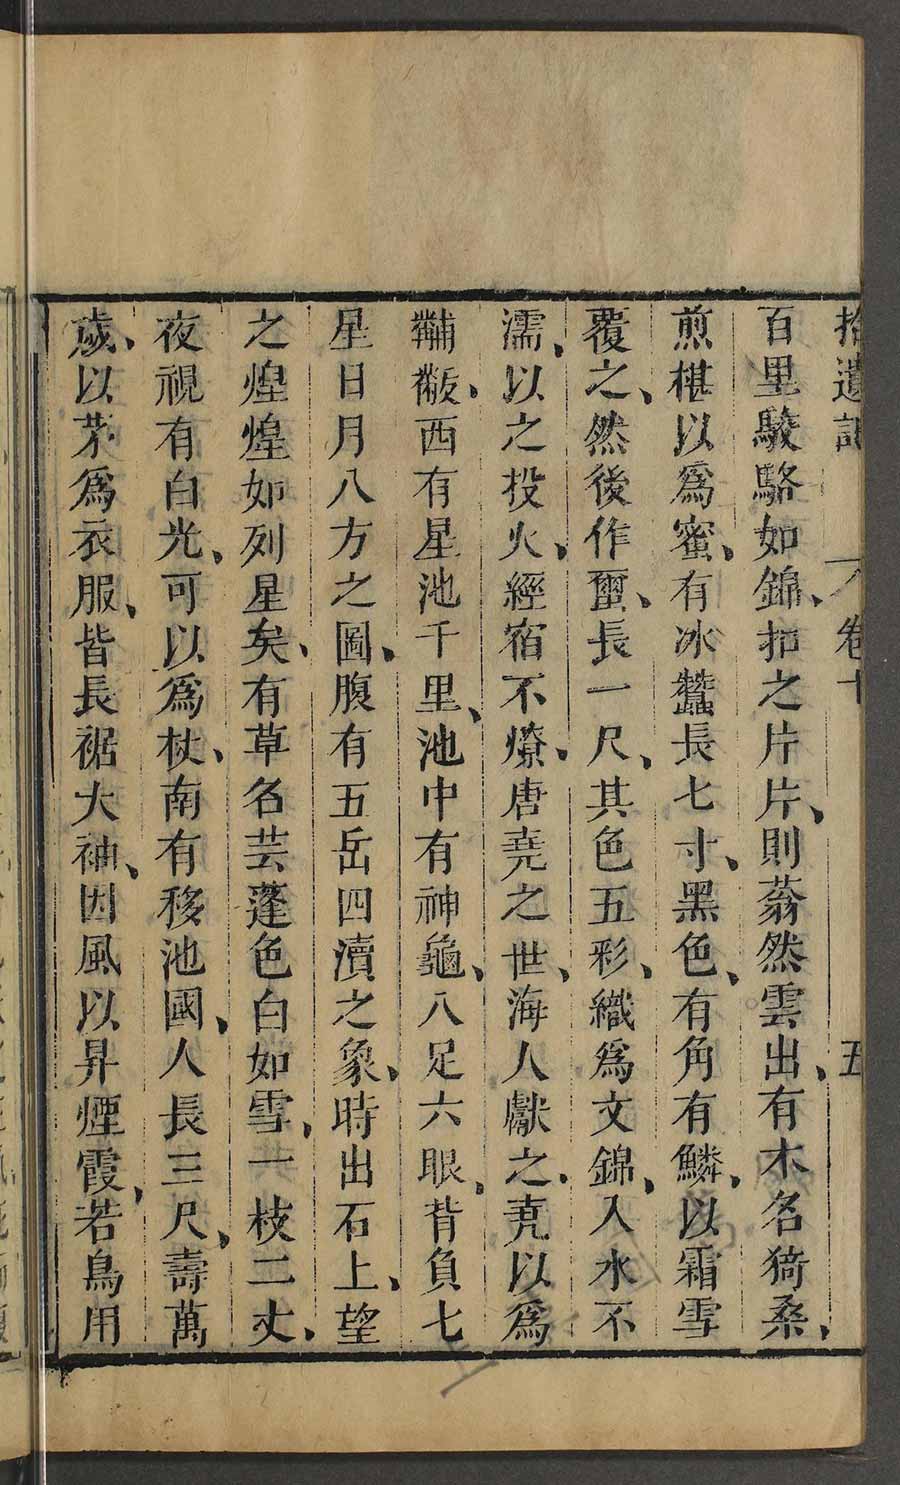 拾遺記 卷十 五
百里駿駱如錦、扣之片片、則蓊然雲出、有木名猗桑、
煎椹以爲蜜、有冰蠶長七寸、黑色、有角有鱗、以霜雪
覆之、然後作蠒、長一尺、其色五彩、織爲文錦、入水不
濡、以之投火、經宿不燎、唐堯之世、海人獻之、堯以爲
黼黻、西有星池千里、池中有神龜、八足六眼、背負七
星日月八方之圖、腹有五岳四瀆之象、時出石上、望
之煌煌如列星矣、有草名芸蓬色白如雪、一枝二丈、
夜視有白光、可以爲杖、南有移池國、人長三尺、壽萬
歲、以茅爲衣服、皆長裾大袖、因風以昇煙霞、若鳥用